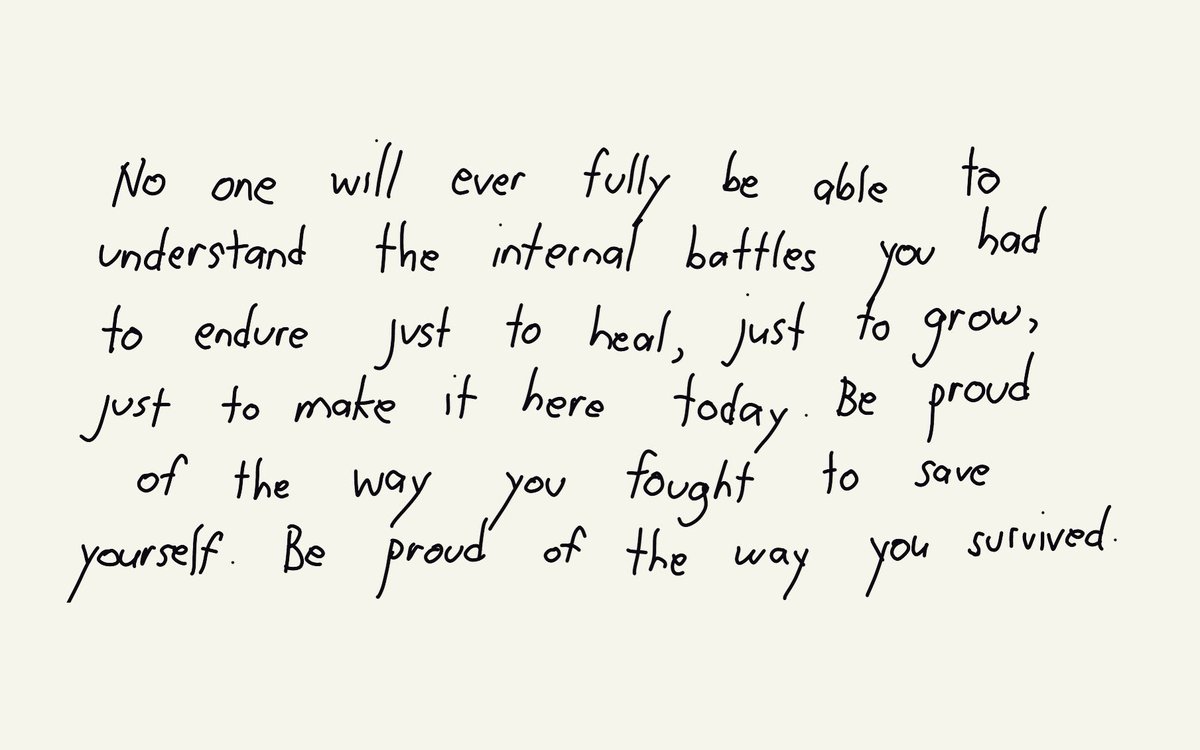 No one will ever fully be able to
understand the internal battles you had
to endure just to heal, just to grow,
just to make it here today. Be proud
of the way you fought to save
yourself. Be proud of the way you survived.